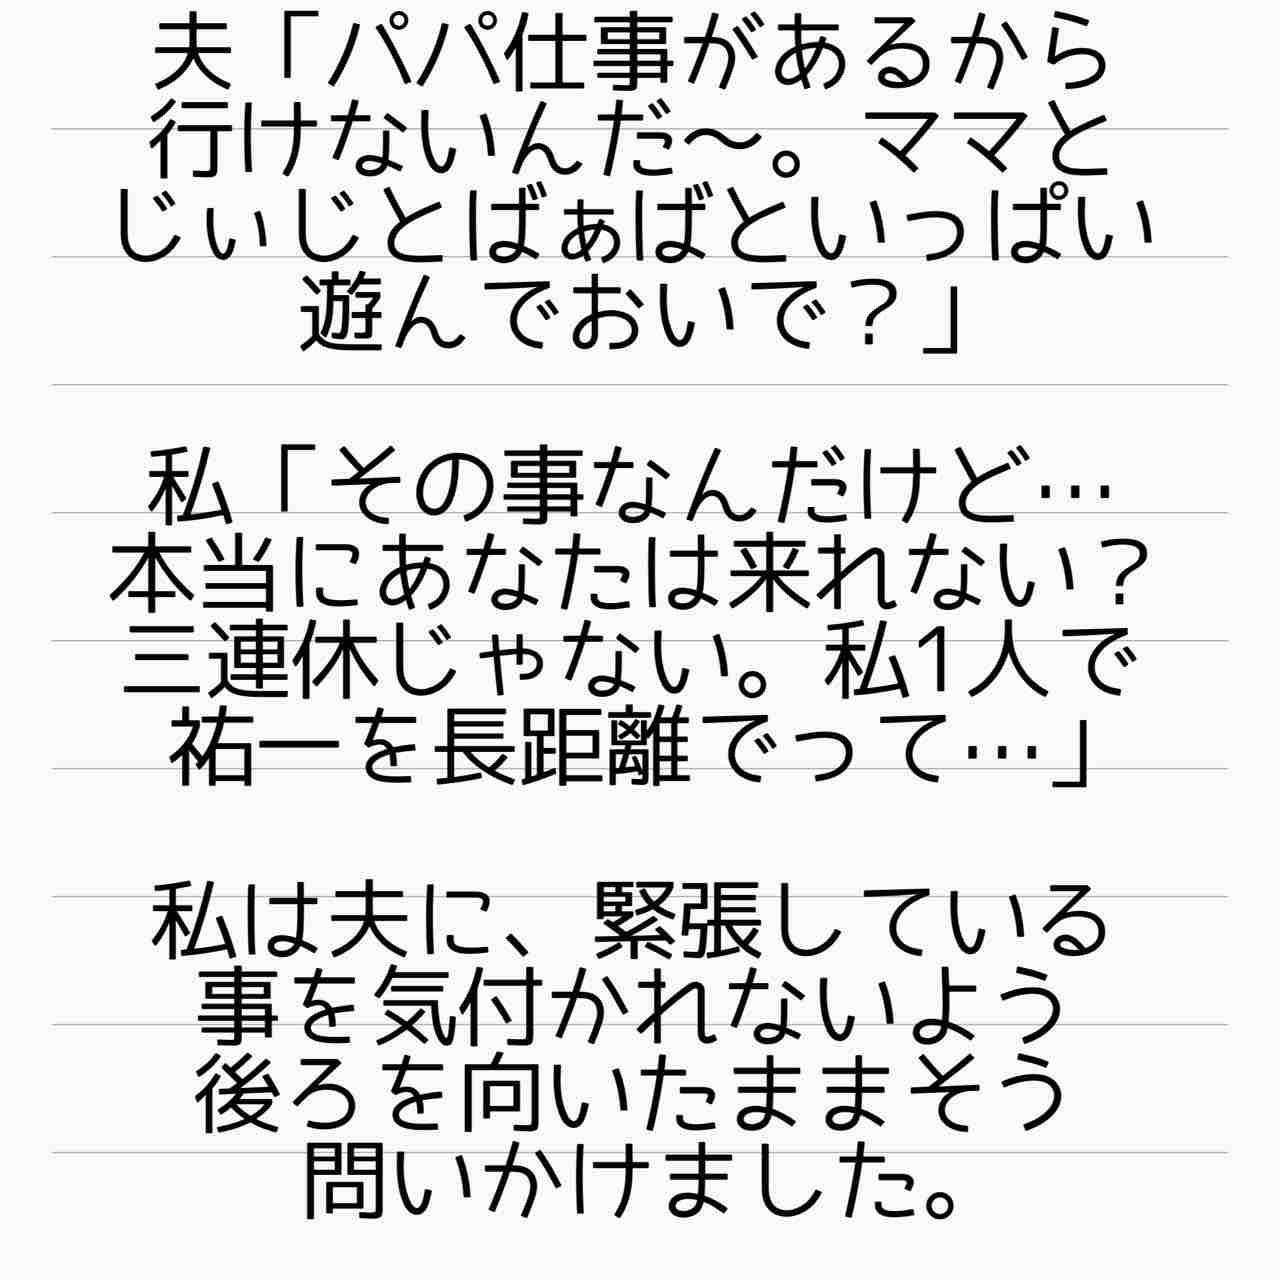 夫「パパ仕事があるから
行けないんだ〜。ママと
じぃじとばぁばといっぱい
遊んでおいで？」
私「その事なんだけど…
本当にあなたは来れない？
三連休じゃない。私1人で
祐一を長距離でって…」
私は夫に、緊張している
事を気付かれないよう
後ろを向いたままそう
問いかけました。